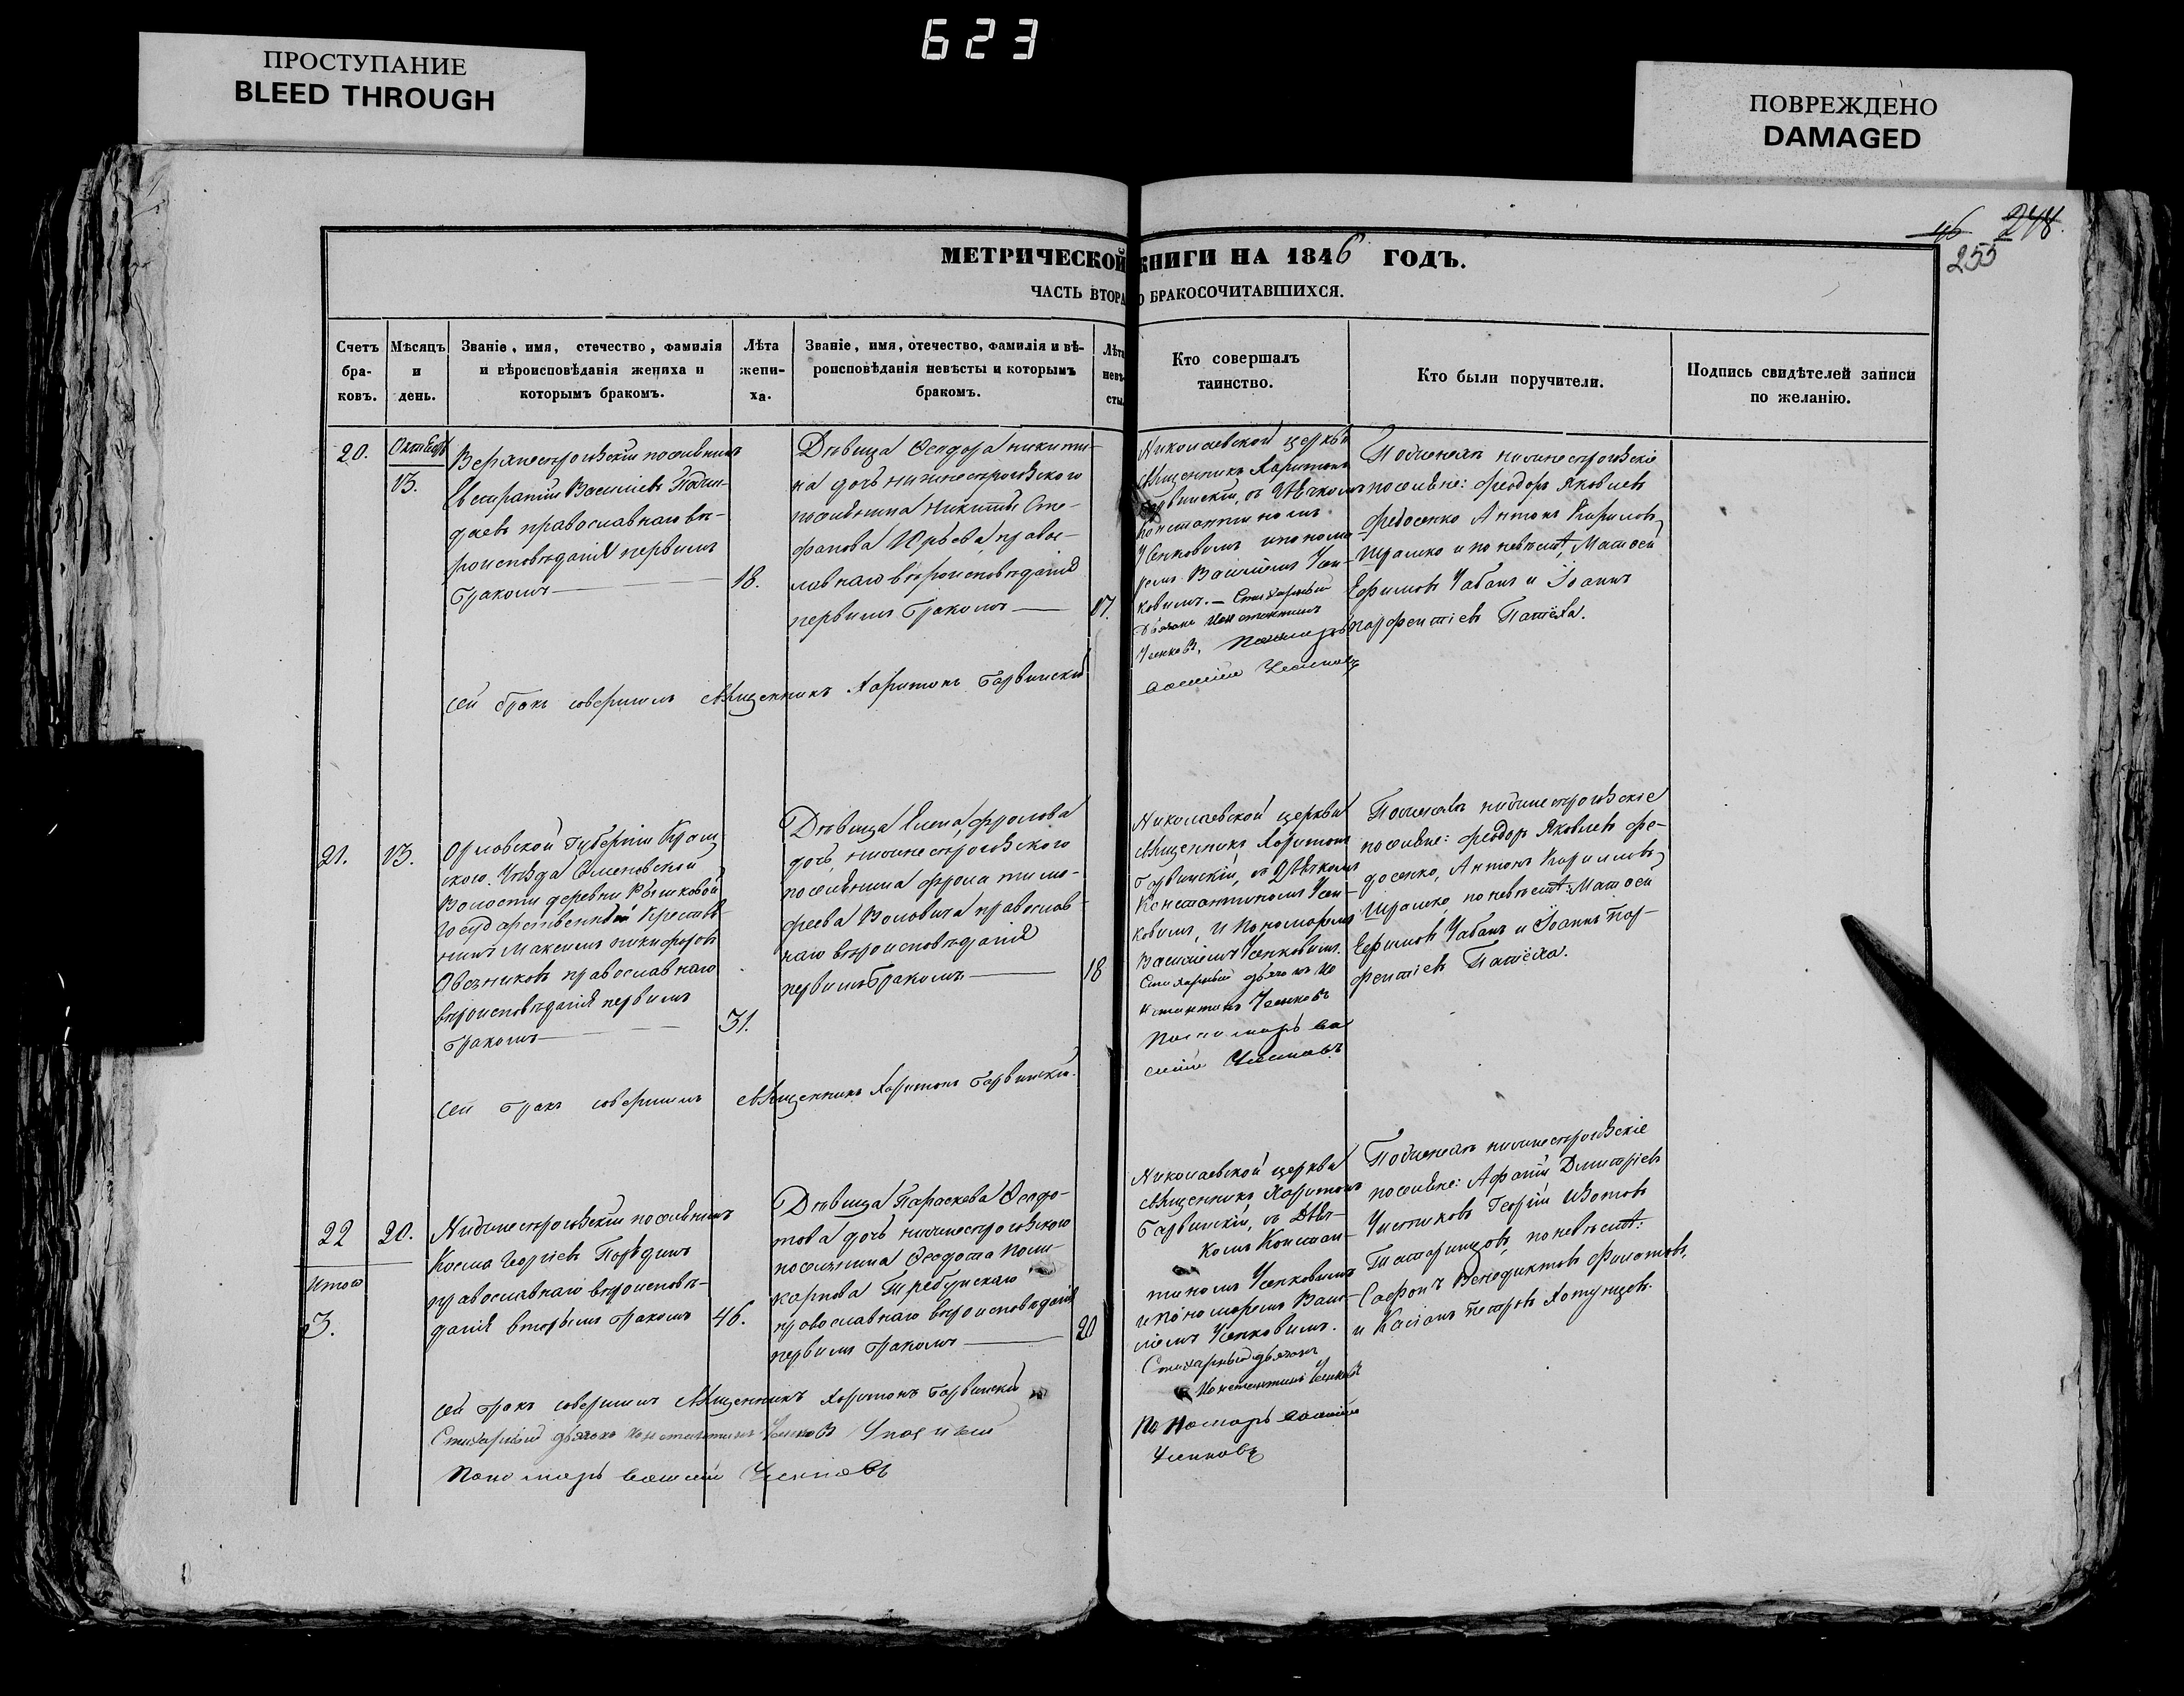 623
ПРОСТУПАНИЕ
BLEED THROUGH
ПОВРЕЖДЕНО
DAMAGED
46 248.
255
МЕТРИЧЕСКОЙ КНИГИ НА 1846 ГОДЪ.
ЧАСТЬ ВТОРА О БРАКОСОЧИТАВШИХСЯ.
Счетъ бра-ковъ.
Мѣсяцъ и день.
Званіе, имя, отечество, фамилія и вѣроисповѣданія жениха и которымъ бракомъ.
Лѣта жени-ха.
Званіе, имя, отечество, фамилія и вѣ-роисповѣданія невѣсты и которымъ бракомъ.
Лѣта невѣ-сты
Кто совершалъ таинство.
Кто были поручители.
Подпись свидѣтелей записи по желанію.
20.
13.
Василіевъ
православнаго вѣ-
роисповѣданія первымъ
бракомъ
18.
Дѣвица Ѳеодора Никити-
на дочь
поселянина Никиты Сте-
фанова Юрьева, правос-
лавнаго вѣроисповѣданія
первымъ бракомъ
17.
Николаевской церкви
Священникъ Харитонъ
Гарвинскій, съ Дьячкомъ
Константиномъ
Усенковымъ и понома-
ремъ Василіемъ Усен-
ковымъ. – Стихарный
Дьячокъ Константинъ
Усенковъ, Пономарь
Василій Усенковъ
поселяне: Феодоръ Яковлевъ
Федосенко Антонъ Кириловъ
и по невѣстѣ, Матѳей
Ефимовъ Чабанъ и Іоаннъ
Парфентіевъ
Сей бракъ совершилъ Священникъ Харитонъ Гарвинскій
21.
13.
Орловской Губерніи Кром-
скаго Уѣзда
Волости деревни
Государственный Крестья-
нинъ Максимъ Никифоровъ
Овсяниковъ православнаго
вѣроисповѣданія первымъ
бракомъ
31.
Дѣвица Елена, Фролова
дочь,
поселянина Фрола Тимо-
феева Воловича православ-
наго вѣроисповѣданія
первымъ бракомъ
18
Николаевской церкви
Священникъ Харитонъ
Гарвинскій, съ Дьячкомъ
Константиномъ Усен-
ковымъ, и Пономаремъ
Василіемъ Усенковымъ.
Стихарный дьячокъ Ко
нстантинъ Усенковъ
Пономарь Ва
силій Усенковъ
поселяне: Феодоръ Яковлевъ Фе-
досенко, Антонъ Кирилловъ
по невѣстѣ: Матѳей
Ефимовъ Чабанъ и Іоаннъ Пар-
фентіевъ
Сей бракъ совершилъ Священникъ Харитонъ Гарвинскій.
22
20.
Итого
3.
Косма Георгіевъ
православнаго вѣроисповѣ-
данія вторымъ бракомъ
46.
Дѣвица Параскева Ѳеодо-
това дочь
поселянина Ѳеодота Поли-
карпова
православнаго вѣроисповѣданія
первымъ бракомъ
20
Николаевской церкви
Священникъ Харитонъ
Гарвинскій, съ Дьяч-
комъ Констан-
тиномъ Усенковымъ
и пономаремъ Васи-
ліемъ Усенковымъ.
Стихарный дьячокъ
Константинъ Усенковъ
Пономарь Василій
Усенковъ
поселяне: Дмитріевъ
Чистяковъ Георгій Изотовъ
по невѣстѣ:
Сафонъ Венедиктовъ Филатовъ,
и Касіанъ Петровъ
Сей бракъ совершилъ Священникъ Харитонъ Гарвинскій
Стихарный дьячокъ Константинъ Усенковъ
Пономарь Василій Усенковъ